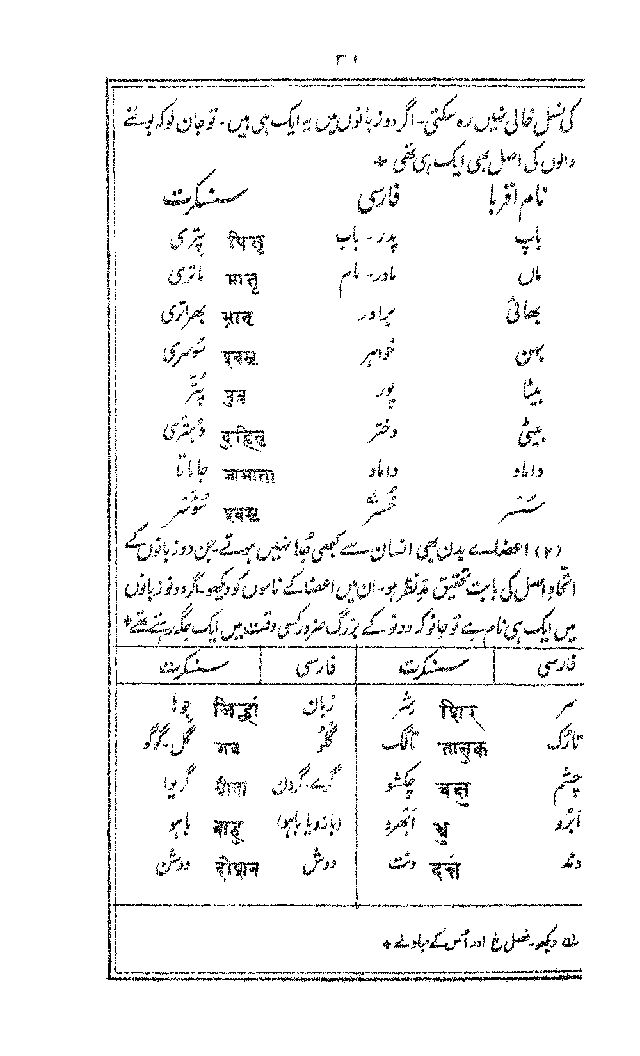 ۳۱
کی نسل خالی نہیں رہ سکتی۔ اگر دو زبانوں میں یہ ایک ہی ہیں۔ تو جان لو کہ بولنے
والوں کی اصل بھی ایک ہی تھی *
نام اقربا فارسی سنسکرت
باپ پدر۔ باب पितृ پتری
ماں مادر۔ مام मातृ ماتری
بھائی برادر भ्रातृ بھراتری
بہن خواہر स्वसृ سوسری
بیٹا پور पुत्र پتر
بیٹی دختر दुहितृ دُہتری
داماد داماد जामाता جاماتا
سسر خسر سوسر
(۲) اعضاے بدن بھی انسان سے کبھی جُدا نہیں ہوتے۔ جن دو زبانوں کے
اتحاد اصل کی بابت تحقیق مدّنظر ہو۔ ان میں اعضا کے ناموں کو دیکھو۔ اگر دونو زبانوں
میں ایک ہی نام ہے تو جانو کہ دونو کے بزرگ ضرور کسی وقت میں ایک جگہ رہتے تھے *
فارسی سنسکرت فارسی سنسکرت
سر शिर شر زبان जिह्वा جِہوا
تارک तालुक تالک گلو गल گل۔ گلو
چشم चक्षु چکشو گرے۔ گردن ग्रीवा گریوا
ابرو भ्रु اَبھرو (بازو یا باہو) बाहु باہو
دند दन्त دنت دوش दोषन دوشن
لہ دیکھو۔ فصل غ اور اُس کے مبادلے *